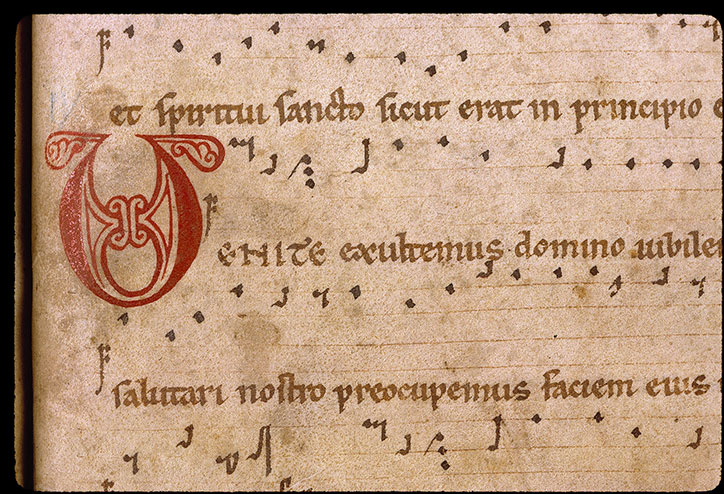 et spiritui sancto sicut erat in principio
VENITE exultemus domino iubile
salutari nostro preocupemus faciem eius